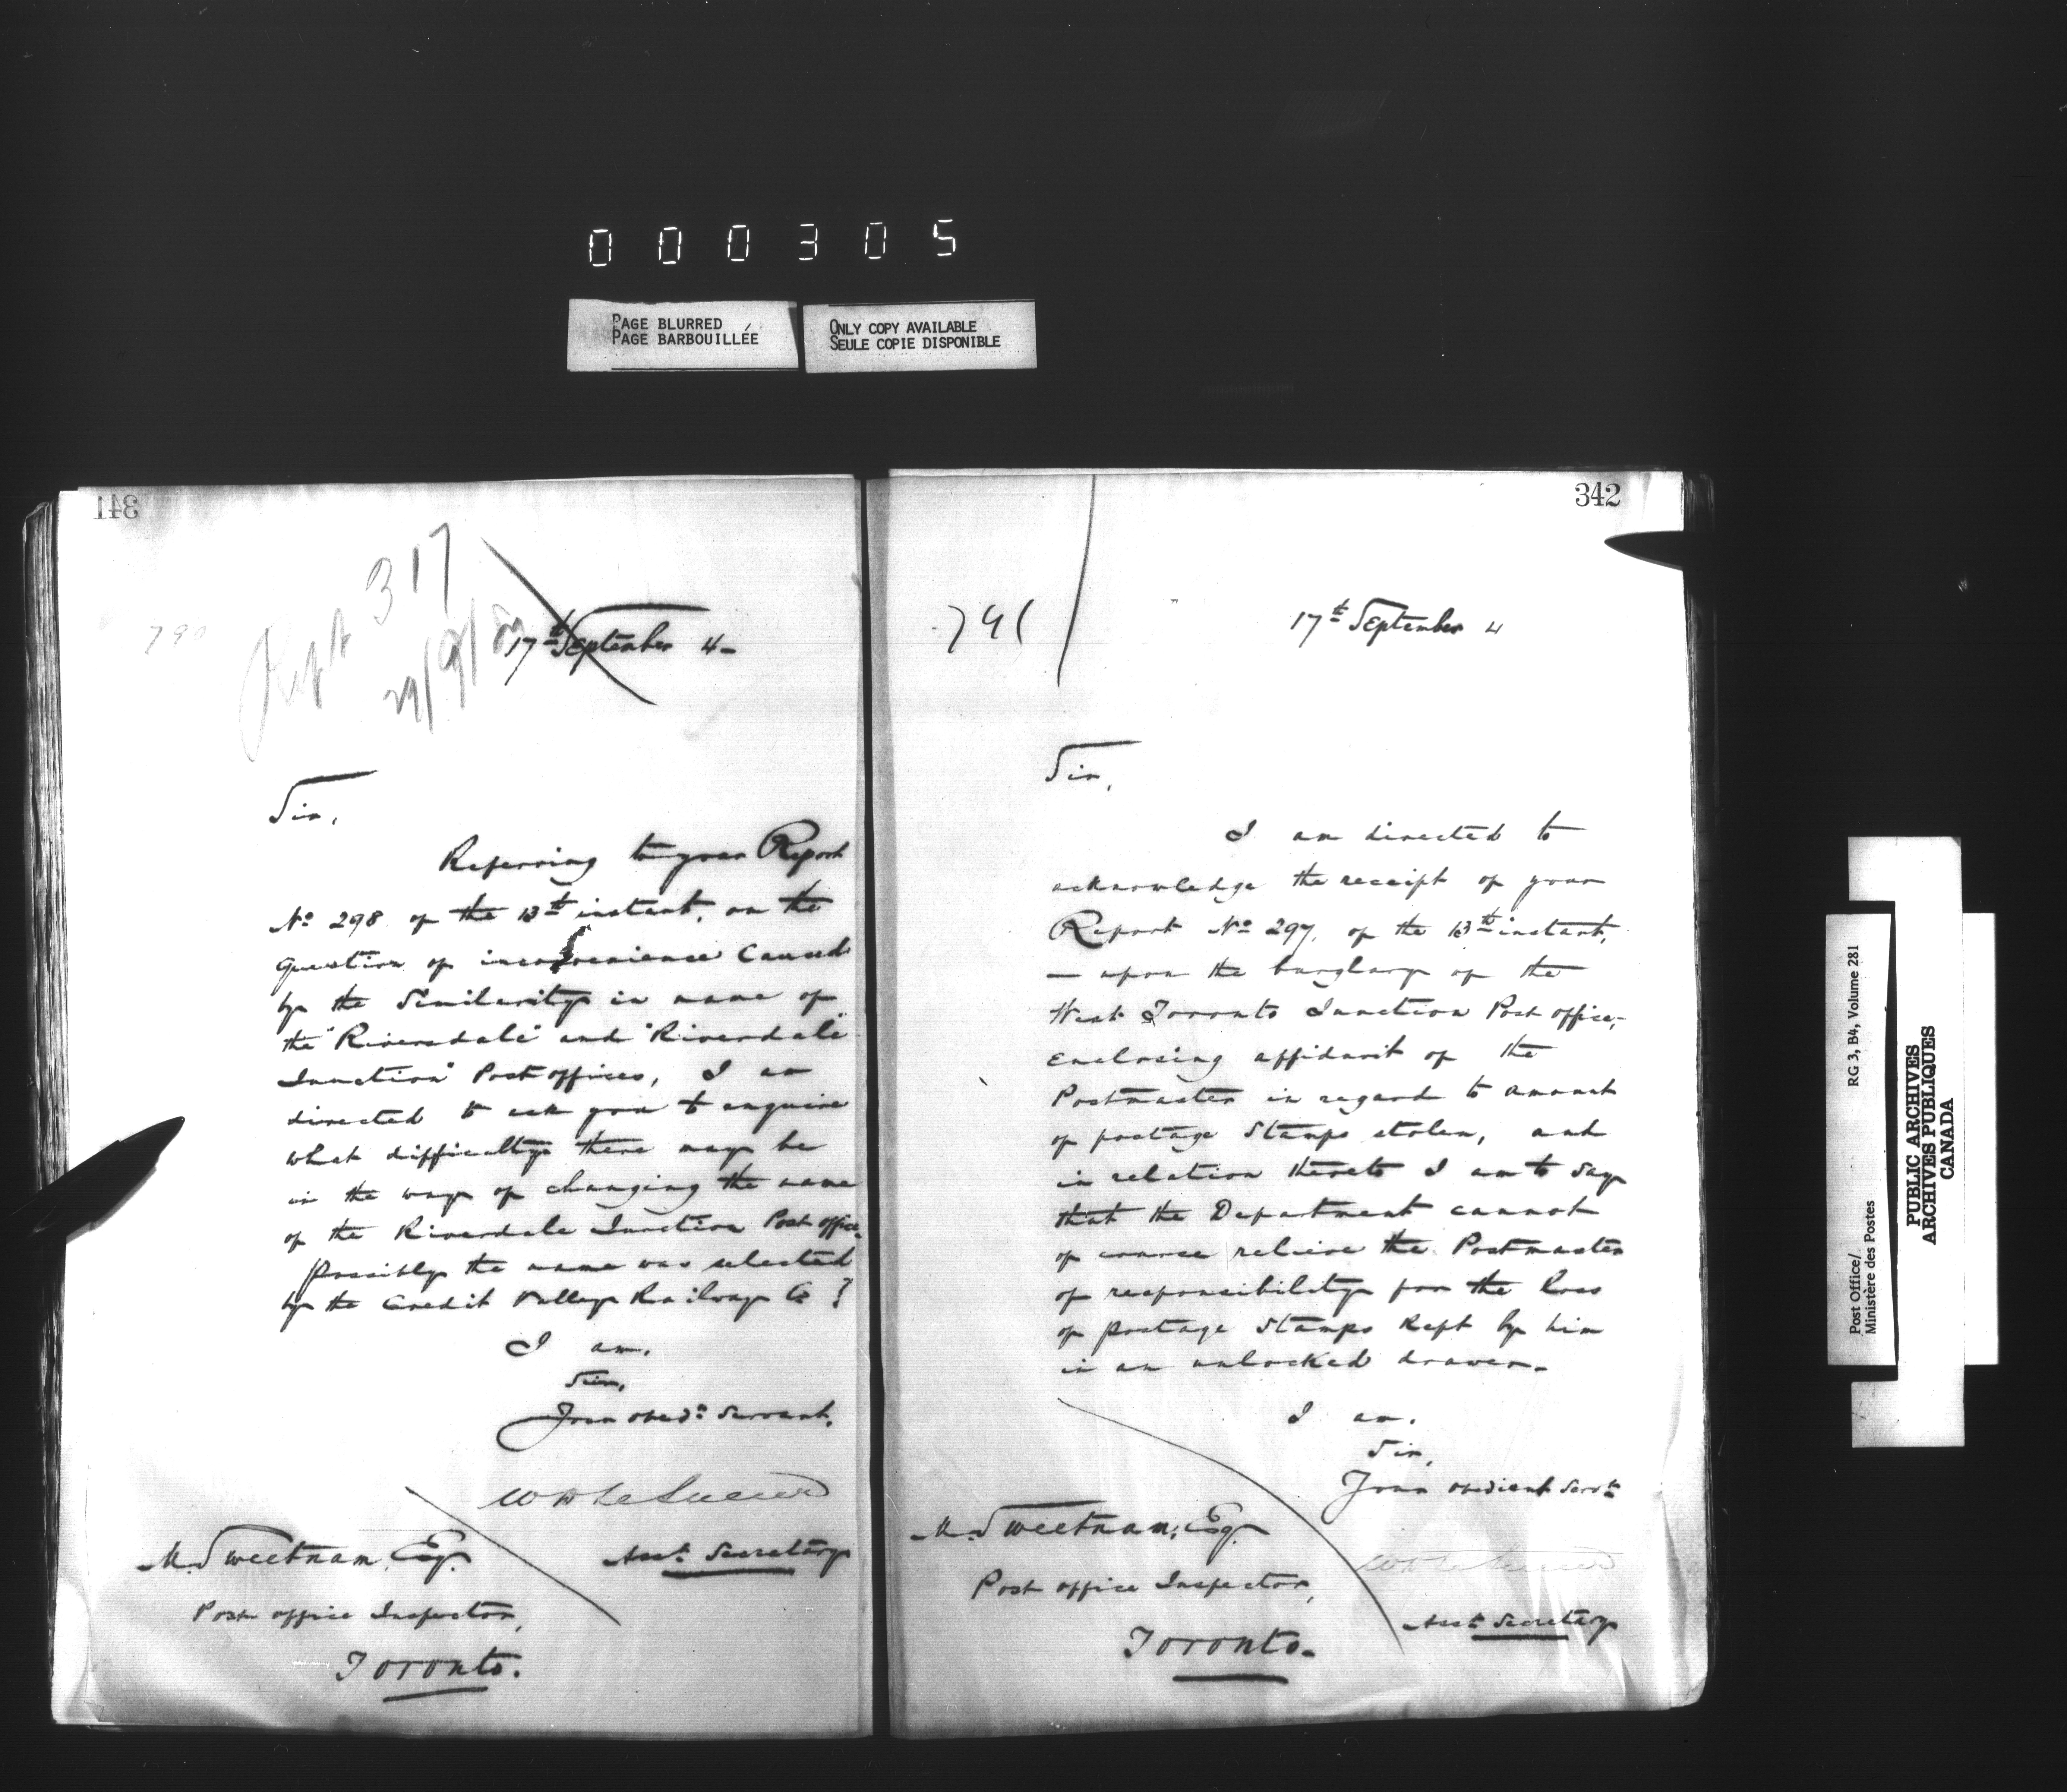 000305
PAGE BLURRED
PAGE BARBOUILLÉE
ONLY COPY AVAILABLE
SEULE COPIE DISPONIBLE
341
790
Rept 317
29/9/84
17th September 4-
Sir,
Referring to your Report
No 298 of the 13th instant, on the
question of inconvenience caused
by the similarity in name of
the "Riversdale" and "Riverdale
Junction" Post offices, I am
directed to ask you to enquire
what difficulty there may be
in the way of changing the name
of the Riverdale Junction Post office.
Possibly the name was selected
by the Credit Valley Railway Co ?
I am,
Sir,
Your obedt Servant,
W D LeSueur
Asst Secretary
M. Sweetnam, Esq.
Post office Inspector,
Toronto.
342
791
17th September 4
Sir,
I am directed to
acknowledge the receipt of your
Report No 297, of the 13th instant,
— upon the burglary of the
West Toronto Junction Post office,-
enclosing affidavit of the
Postmaster in regard to amount
of postage stamps stolen, and
in relation thereto I am to say
that the Department cannot
of course relieve the Postmaster
of responsibility for the loss
of postage stamps kept by him
in an unlocked drawer.-
I am,
Sir,
Your obedient Servt
W D LeSueur
Asst Secretary
M. Sweetnam, Esq.
Post office Inspector,
Toronto.-
Post Office/
Ministère des Postes
RG 3, B4, Volume 281
PUBLIC ARCHIVES
ARCHIVES PUBLIQUES
CANADA